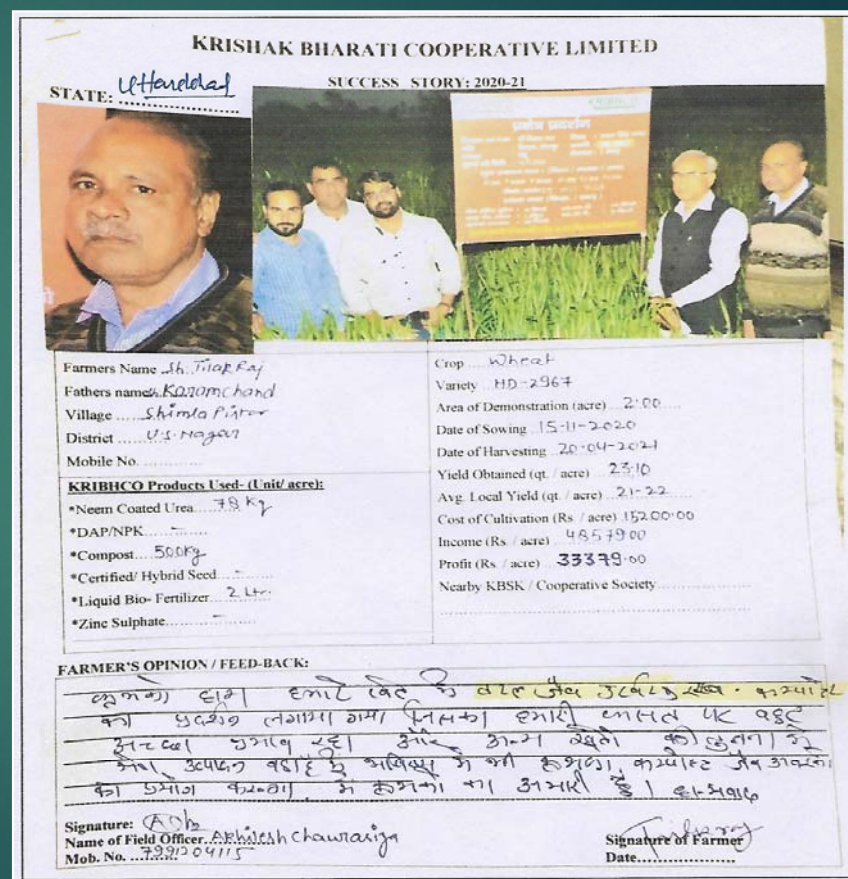 KRISHAK BHARATI COOPERATIVE LIMITED
SUCCESS STORY: 2020-21
STATE:
प्रक्षेत्र प्रदर्शन
Farmers Name Sh. Tilak Raj
Fathers name Karamchand
Village Shimla Pistor
District U.S. Nagar
Mobile No.
KRIBHCO Products Used- (Unit/ acre):
*Neem Coated Urea 78 Kg
*DAP/NPK -
*Compost 500Kg
*Certified/ Hybrid Seed -
*Liquid Bio- Fertilizer 2 Ltr.
*Zinc Sulphate -
Crop Wheat
Variety HD-2967
Area of Demonstration (acre) 2.00
Date of Sowing 15-11-2020
Date of Harvesting 20-04-2021
Yield Obtained (qt. / acre) 23.10
Avg. Local Yield (qt. / acre) 21-22
Cost of Cultivation (Rs. / acre) 15200.00
Income (Rs. / acre) 48579.00
Profit (Rs. / acre) 33379.00
Nearby KBSK / Cooperative Society
FARMER'S OPINION / FEED-BACK:
कृभको द्वारा हमारे खेत में तरल जैव उर्वरक कम्पोस्ट
का प्रदर्शन लगाया गया जिसका हमारी फसल पर बहुत
अच्छा प्रभाव रहा और अन्य खेतों की तुलना में
उत्पादन भविष्य में भी कम्पोस्ट जैव
का प्रयोग करूंगा में कृभको का आभारी हूँ। धन्यवाद
Signature:
Name of Field Officer Akhilesh Chaurasiya
Mob. No. 7991204115
Signature of Farmer
Date